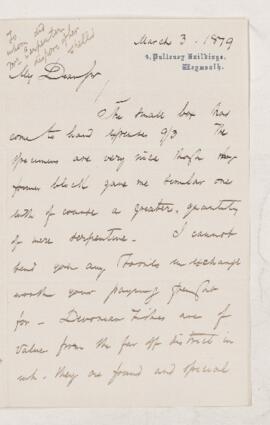 To whom did
Mr. Carpenter
dispose of his
shells
March 3. 1879
4, Pulteney Buildings,
Weymouth.
My Dear Sir
The small box has
come to hand expense 9/3 The
specimens are very nice though my
former block gave me similar one
with of course a greater quantity
of mere serpentine. I cannot
send you any Fossils in exchange
worth your paying freight
for - Devonian Fishes are of
value from the far off district in
wh. they are found and special